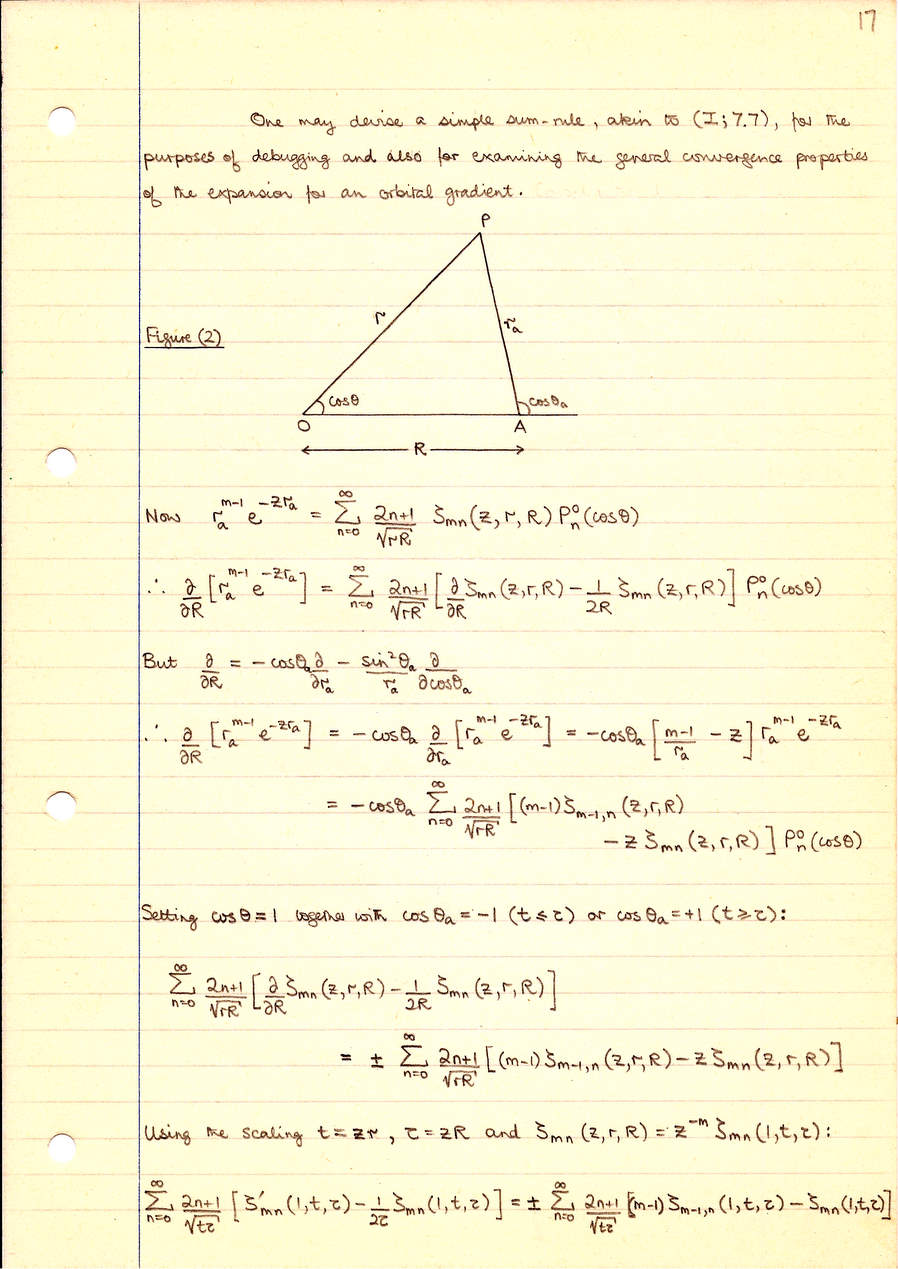 17
One may devise a simple sum-rule, akin to (I; 7.7), for the
purposes of debugging and also for examining the general convergence properties
of the expansion for an orbital gradient.
P
r
r_a
Figure (2)
cosθ
cosθ_a
O
A
R
Now r_a^{m-1} e^{-zr_a} = ∑_{n=0}^{∞} (2n+1)/√(rR) ζ_{mn}(z, r, R) P_n^0(cosθ)
∴ ∂/∂R [r_a^{m-1} e^{-zr_a}] = ∑_{n=0}^{∞} (2n+1)/√(rR) [∂/∂R ζ_{mn}(z,r,R) - 1/2R ζ_{mn}(z,r,R)] P_n^0(cosθ)
But ∂/∂R = -cosθ_a ∂/∂r_a - sin²θ_a/r_a ∂/∂cosθ_a
∴ ∂/∂R [r_a^{m-1} e^{-zr_a}] = -cosθ_a ∂/∂r_a [r_a^{m-1} e^{-zr_a}] = -cosθ_a [(m-1)/r_a - z] r_a^{m-1} e^{-zr_a}
= -cosθ_a ∑_{n=0}^{∞} (2n+1)/√(rR) [(m-1)ζ_{m-1,n}(z,r,R)
- z ζ_{mn}(z,r,R)] P_n^0(cosθ)
Setting cosθ=1 together with cosθ_a=-1 (t≤τ) or cosθ_a=+1 (t≥τ):
∑_{n=0}^{∞} (2n+1)/√(rR) [∂/∂R ζ_{mn}(z,r,R) - 1/2R ζ_{mn}(z,r,R)]
= ± ∑_{n=0}^{∞} (2n+1)/√(rR) [(m-1)ζ_{m-1,n}(z,r,R) - zζ_{mn}(z,r,R)]
Using the scaling t=zr, τ=zR and ζ_{mn}(z,r,R)=z^{-m} ζ_{mn}(1,t,τ):
∑_{n=0}^{∞} (2n+1)/√(tτ) [ζ'_{mn}(1,t,τ) - 1/2τ ζ_{mn}(1,t,τ)] = ± ∑_{n=0}^{∞} (2n+1)/√(tτ) [(m-1)ζ_{m-1,n}(1,t,τ) - ζ_{mn}(1,t,τ)]